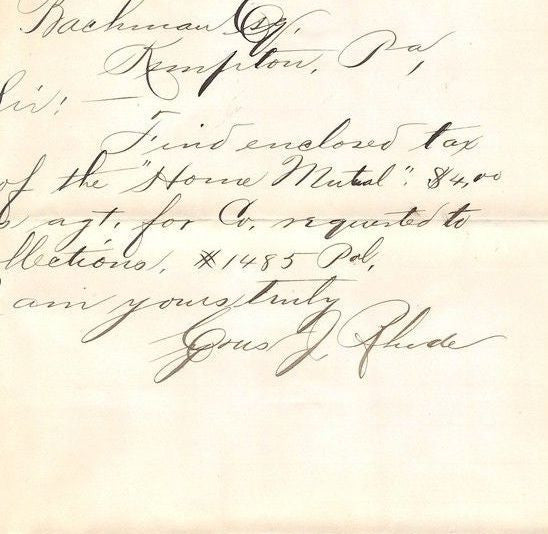 Bachman Esq.
Kempton, Pa,
Sir! —
Find enclosed tax
of the "Home Mutual". $4,00
s agt. for Co. requested to
llections, #1485 Pol,
I am yours truly
J Rhode